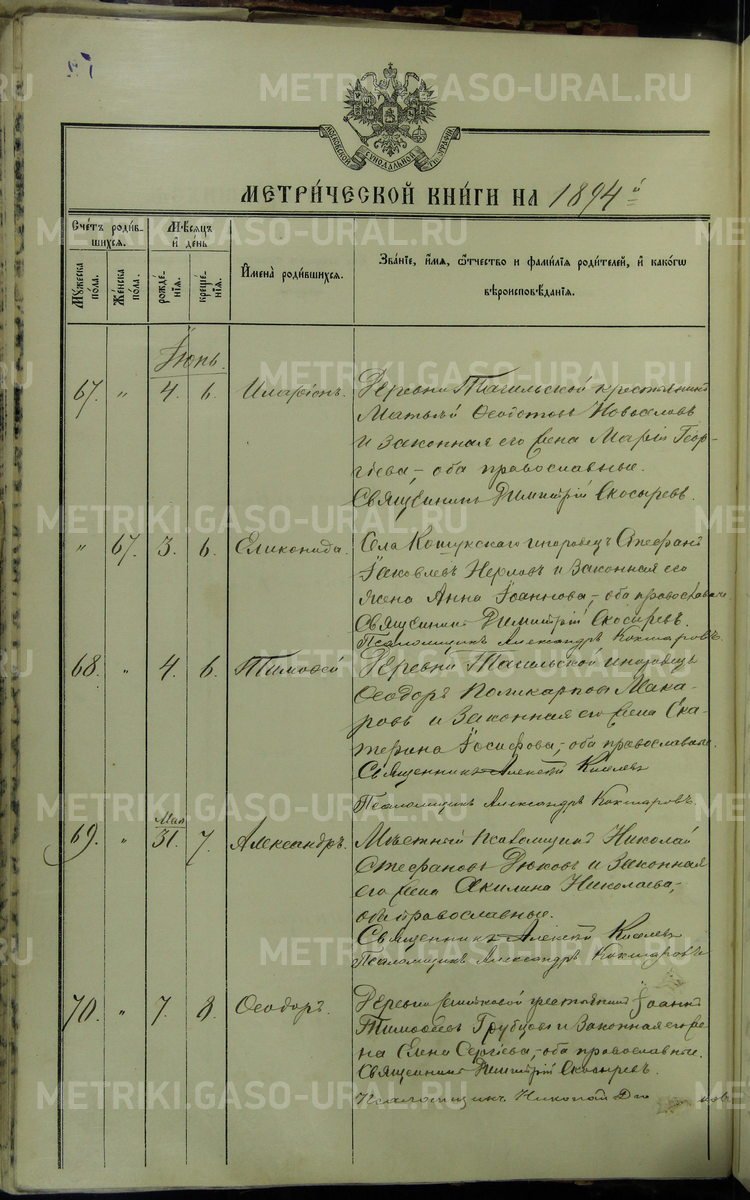 МОСКОВСКОЙ СУНОДАЛЬНОЙ ТѴПОГРАФІИ
МЕТРИ́ЧЕСКОЙ КНИ́ГИ НА 1894 й
Сче́тъ роди́вшихся.
Мѣ́сяцъ и де́нь
И҆мена̀ роди́вшихся.
Зва́нїе, и҆́мя, ѻ҆́тчество и фами́лїя роди́телей, и како́гѡ вѣроисповѣ́данїя.
Мꙋ́жеска по́ла.
Же́нска по́ла.
рожде́нїя.
креще́нїя.
Іюнь.
67. " 4. 6. Иларіонъ. Деревни Тагильской крестьянинъ
Матѳей Ѳеоктистовъ Новоселовъ
и законная его жена Марія Геор-
гіева, – оба православные.
Священникъ Димитрій Скосыревъ.
" 67. 3. 6. Еликонида. Села Кошукскаго инородецъ Стефанъ
Іаковлевъ Нерловъ и законная его
жена Анна Іоаннова, – оба православные.
Священникъ Димитрій Скосыревъ.
Псаломщикъ Александръ Кокшаровъ.
68. " 4. 6. Тимоѳей Деревни Тагильской инородецъ
Ѳеодоръ Поликарповъ Мака-
ровъ и законная его жена Ека-
терина Іосифова, – оба православные.
Священникъ Алексій Киселевъ
Псаломщикъ Александръ Кокшаровъ.
Мая
69. " 31. 7. Александръ. Мѣстный псаломщикъ Николай
Стефановъ Дюковъ и законная
его жена Акилина Николаева, –
оба православные.
Священникъ Алексій Киселевъ
Псаломщикъ Александръ Кокшаровъ
70. " 7. 8. Ѳеодоръ. Деревни крестьянинъ Іоаннъ
Тимоѳеевъ Грубцовъ и законная его же-
на Елена Сергіева, – оба православные.
Священникъ Димитрій Скосыревъ.
Псаломщикъ Николай Дю ковъ
METRIKI.GASO-URAL.RU